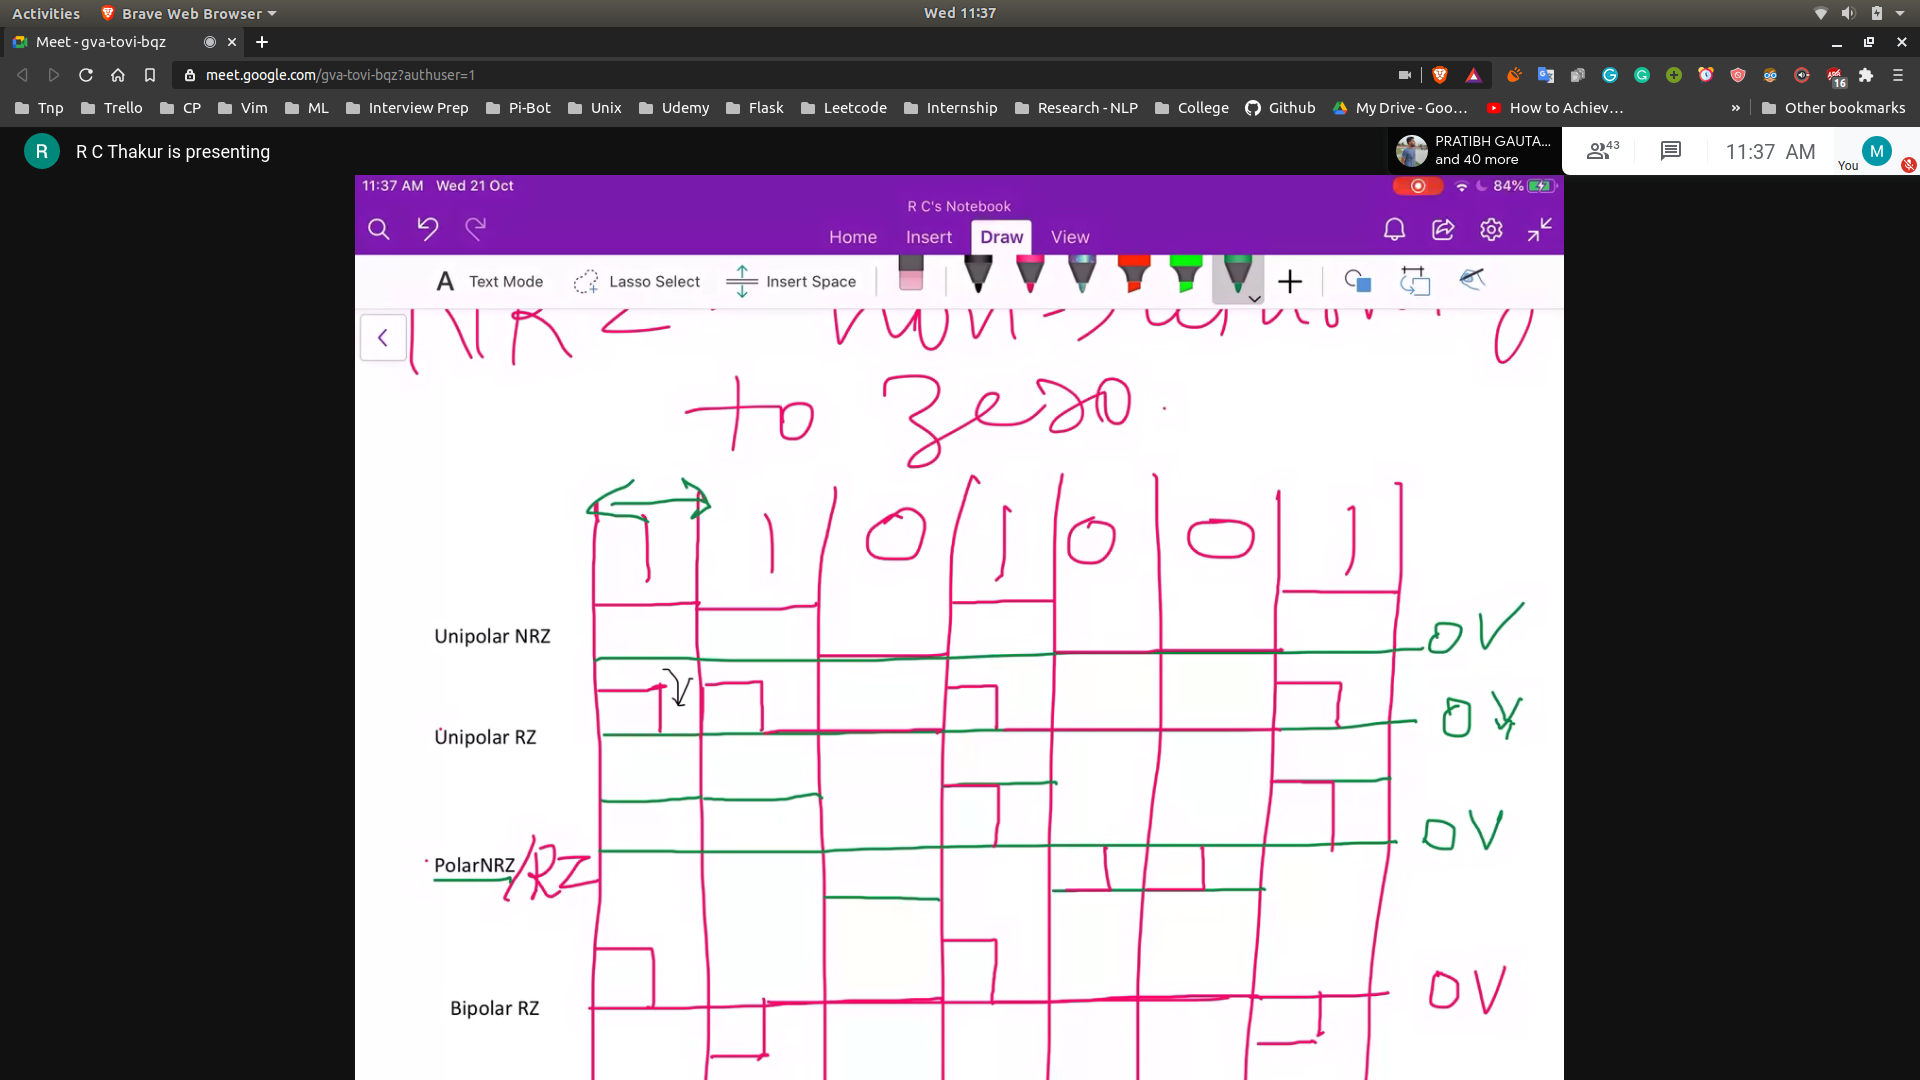 Activities Brave Web Browser Wed 11:37
Meet - gva-tovi-bqz
meet.google.com/gva-tovi-bqz?authuser=1 16
Tnp Trello CP Vim ML Interview Prep Pi-Bot Unix Udemy Flask Leetcode Internship Research - NLP College Github My Drive - Goo... How to Achiev... » Other bookmarks
R R C Thakur is presenting PRATIBH GAUTA... and 40 more 43 11:37 AM You M
11:37 AM Wed 21 Oct 84%
R C's Notebook
Home Insert Draw View
A Text Mode Lasso Select Insert Space
NRZ - Non-returning
to zero.
1 1 0 1 0 0 1
Unipolar NRZ 0V
Unipolar RZ 0V
PolarNRZ/RZ 0V
Bipolar RZ 0V